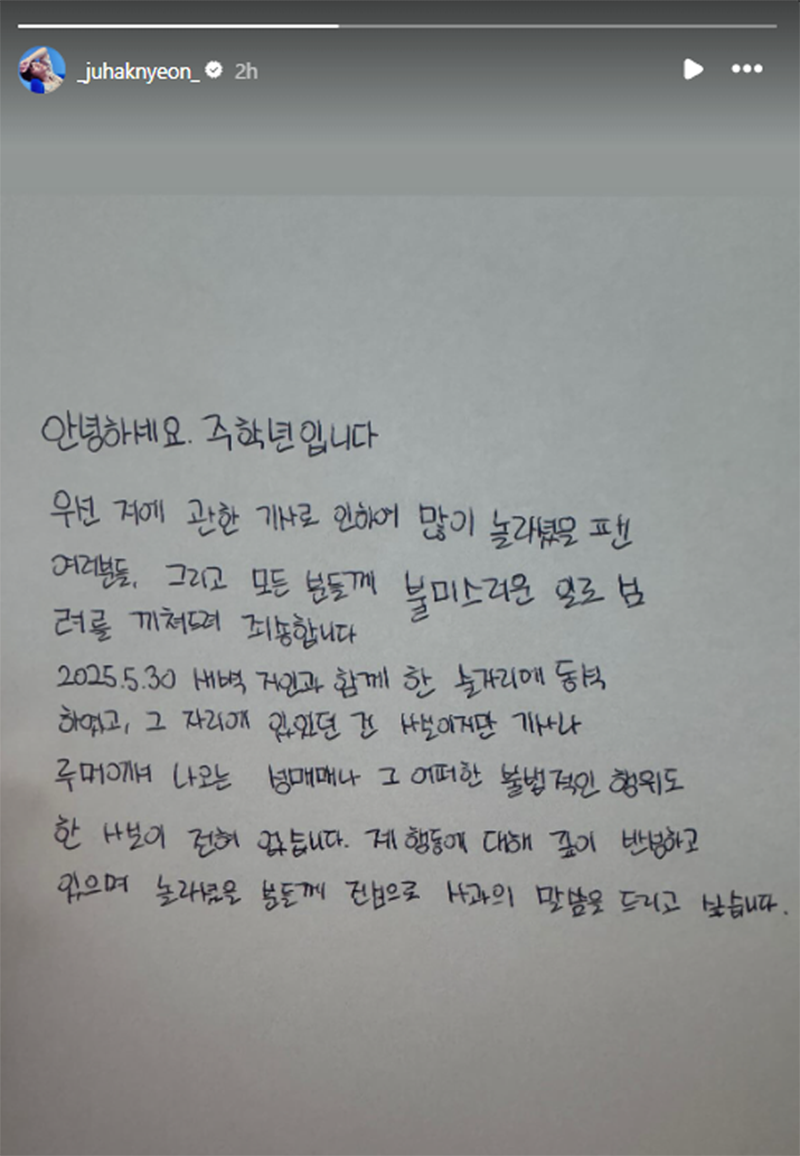 _juhaknyeon_ 2h
안녕하세요. 주학년입니다
우선 저에 관한 기사로 인하여 많이 놀라셨을 팬
여러분들, 그리고 모든 분들께 불미스러운 일로 심
려를 끼쳐드려 죄송합니다
2025.5.30 새벽 지인과 함께 한 술자리에 동석
하였고, 그 자리에 있었던 건 사실이지만 기사나
루머에서 나오는 성매매나 그 어떠한 불법적인 행위도
한 사실이 전혀 없습니다. 제 행동에 대해 깊이 반성하고
있으며 놀라셨을 분들께 진심으로 사과의 말씀을 드리고 싶습니다.